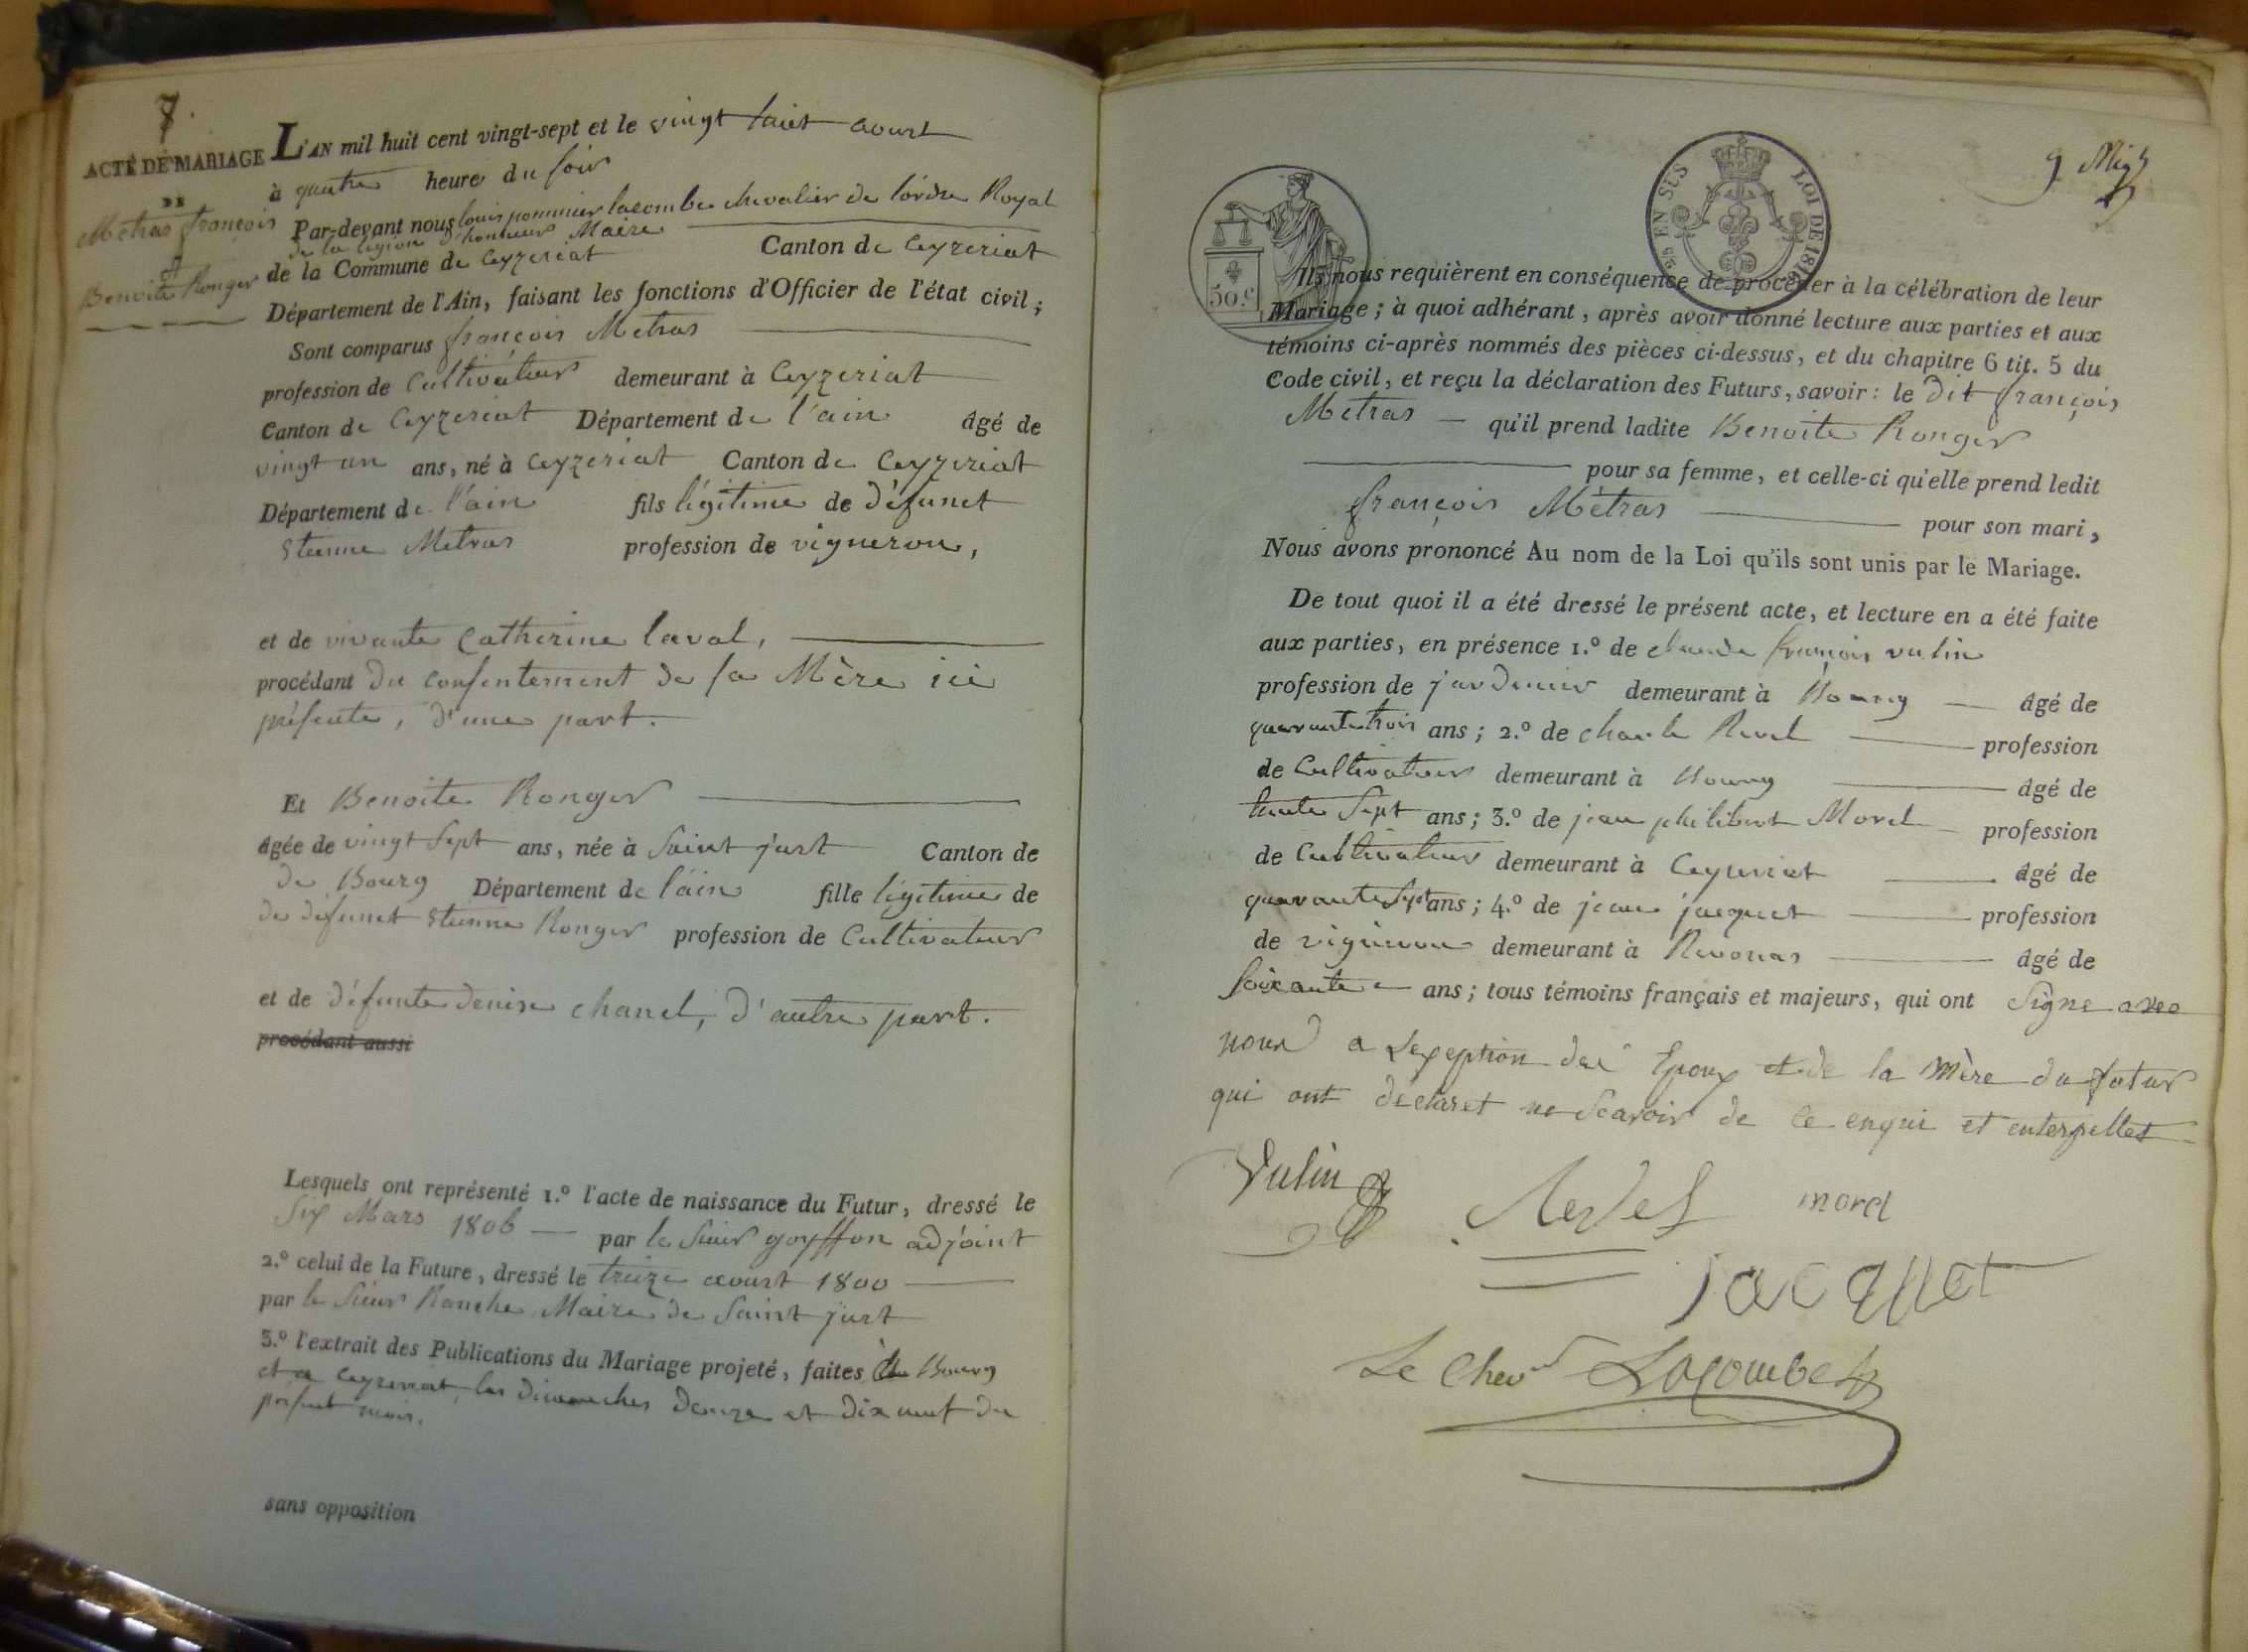 7.
ACTE DE MARIAGE
DE
Métras françois
et
Benoite Ronger
L'AN mil huit cent vingt-sept et le vingt huit aoust
à quatre heures du soir
Par-devant nous louis pommier lacombe chevalier de l'ordre Royal
de la légion d'honneur Maire
de la Commune de Ceyzeriat Canton de Ceyzeriat
Département de l'Ain, faisant les fonctions d'Officier de l'état civil ;
Sont comparus françois Metras
profession de Cultivateur demeurant à Ceyzeriat
Canton de Ceyzeriat Département de l'ain âgé de
vingt un ans, né à Ceyzeriat Canton de Ceyzeriat
Département de l'ain fils légitime de défunct
Etienne Metras profession de vigneron,
et de vivante Catherine laval,
procédant du consentement de sa Mère ici
présente, d'une part.
Et Benoite Ronger
âgée de vingt sept ans, née à Saint just Canton de
de Bourg Département de l'ain fille légitime de
de défunct Etienne Ronger profession de Cultivateur
et de défunte denise chanel, d'autre part.
procédant aussi
Lesquels ont représenté 1.º l'acte de naissance du Futur, dressé le
Six Mars 1806 par le Sieur goyffon adjoint
2.º celui de la Future, dressé le treize aoust 1800
par le Sieur Ranche Maire de Saint just
3.º l'extrait des Publications du Mariage projeté, faites à Bourg
et a Ceyzeriat, les dimanches douze et dix neuf du
présent mois.
sans opposition
9
50.c
25 EN SUS LOI DE 1816
Ils nous requièrent en conséquence de procéder à la célébration de leur
Mariage ; à quoi adhérant, après avoir donné lecture aux parties et aux
témoins ci-après nommés des pièces ci-dessus, et du chapitre 6 tit. 5 du
Code civil, et reçu la déclaration des Futurs, savoir : le dit françois
Métras qu'il prend ladite Benoite Ronger
pour sa femme, et celle-ci qu'elle prend ledit
françois Métras pour son mari,
Nous avons prononcé Au nom de la Loi qu'ils sont unis par le Mariage.
De tout quoi il a été dressé le présent acte, et lecture en a été faite
aux parties, en présence 1.º de claude françois vulin
profession de jardinier demeurant à Bourg âgé de
quarante trois ans ; 2.º de charle Revel profession
de Cultivateur demeurant à Bourg âgé de
trente Sept ans ; 3.º de jean philibert Morel profession
de Cultivateur demeurant à Ceyzeriat âgé de
quarante Sept ans ; 4.º de jean jacquet profession
de vigneron demeurant à Revonas âgé de
Soixante ans ; tous témoins français et majeurs, qui ont Signe avec
nous a Lexception des Epoux et de la Mère du futur
qui ont déclaret ne Scavoir de ce enqui et enterpellet
Vulin
Revel
morel
jacquet
Le Chevr Lacombe